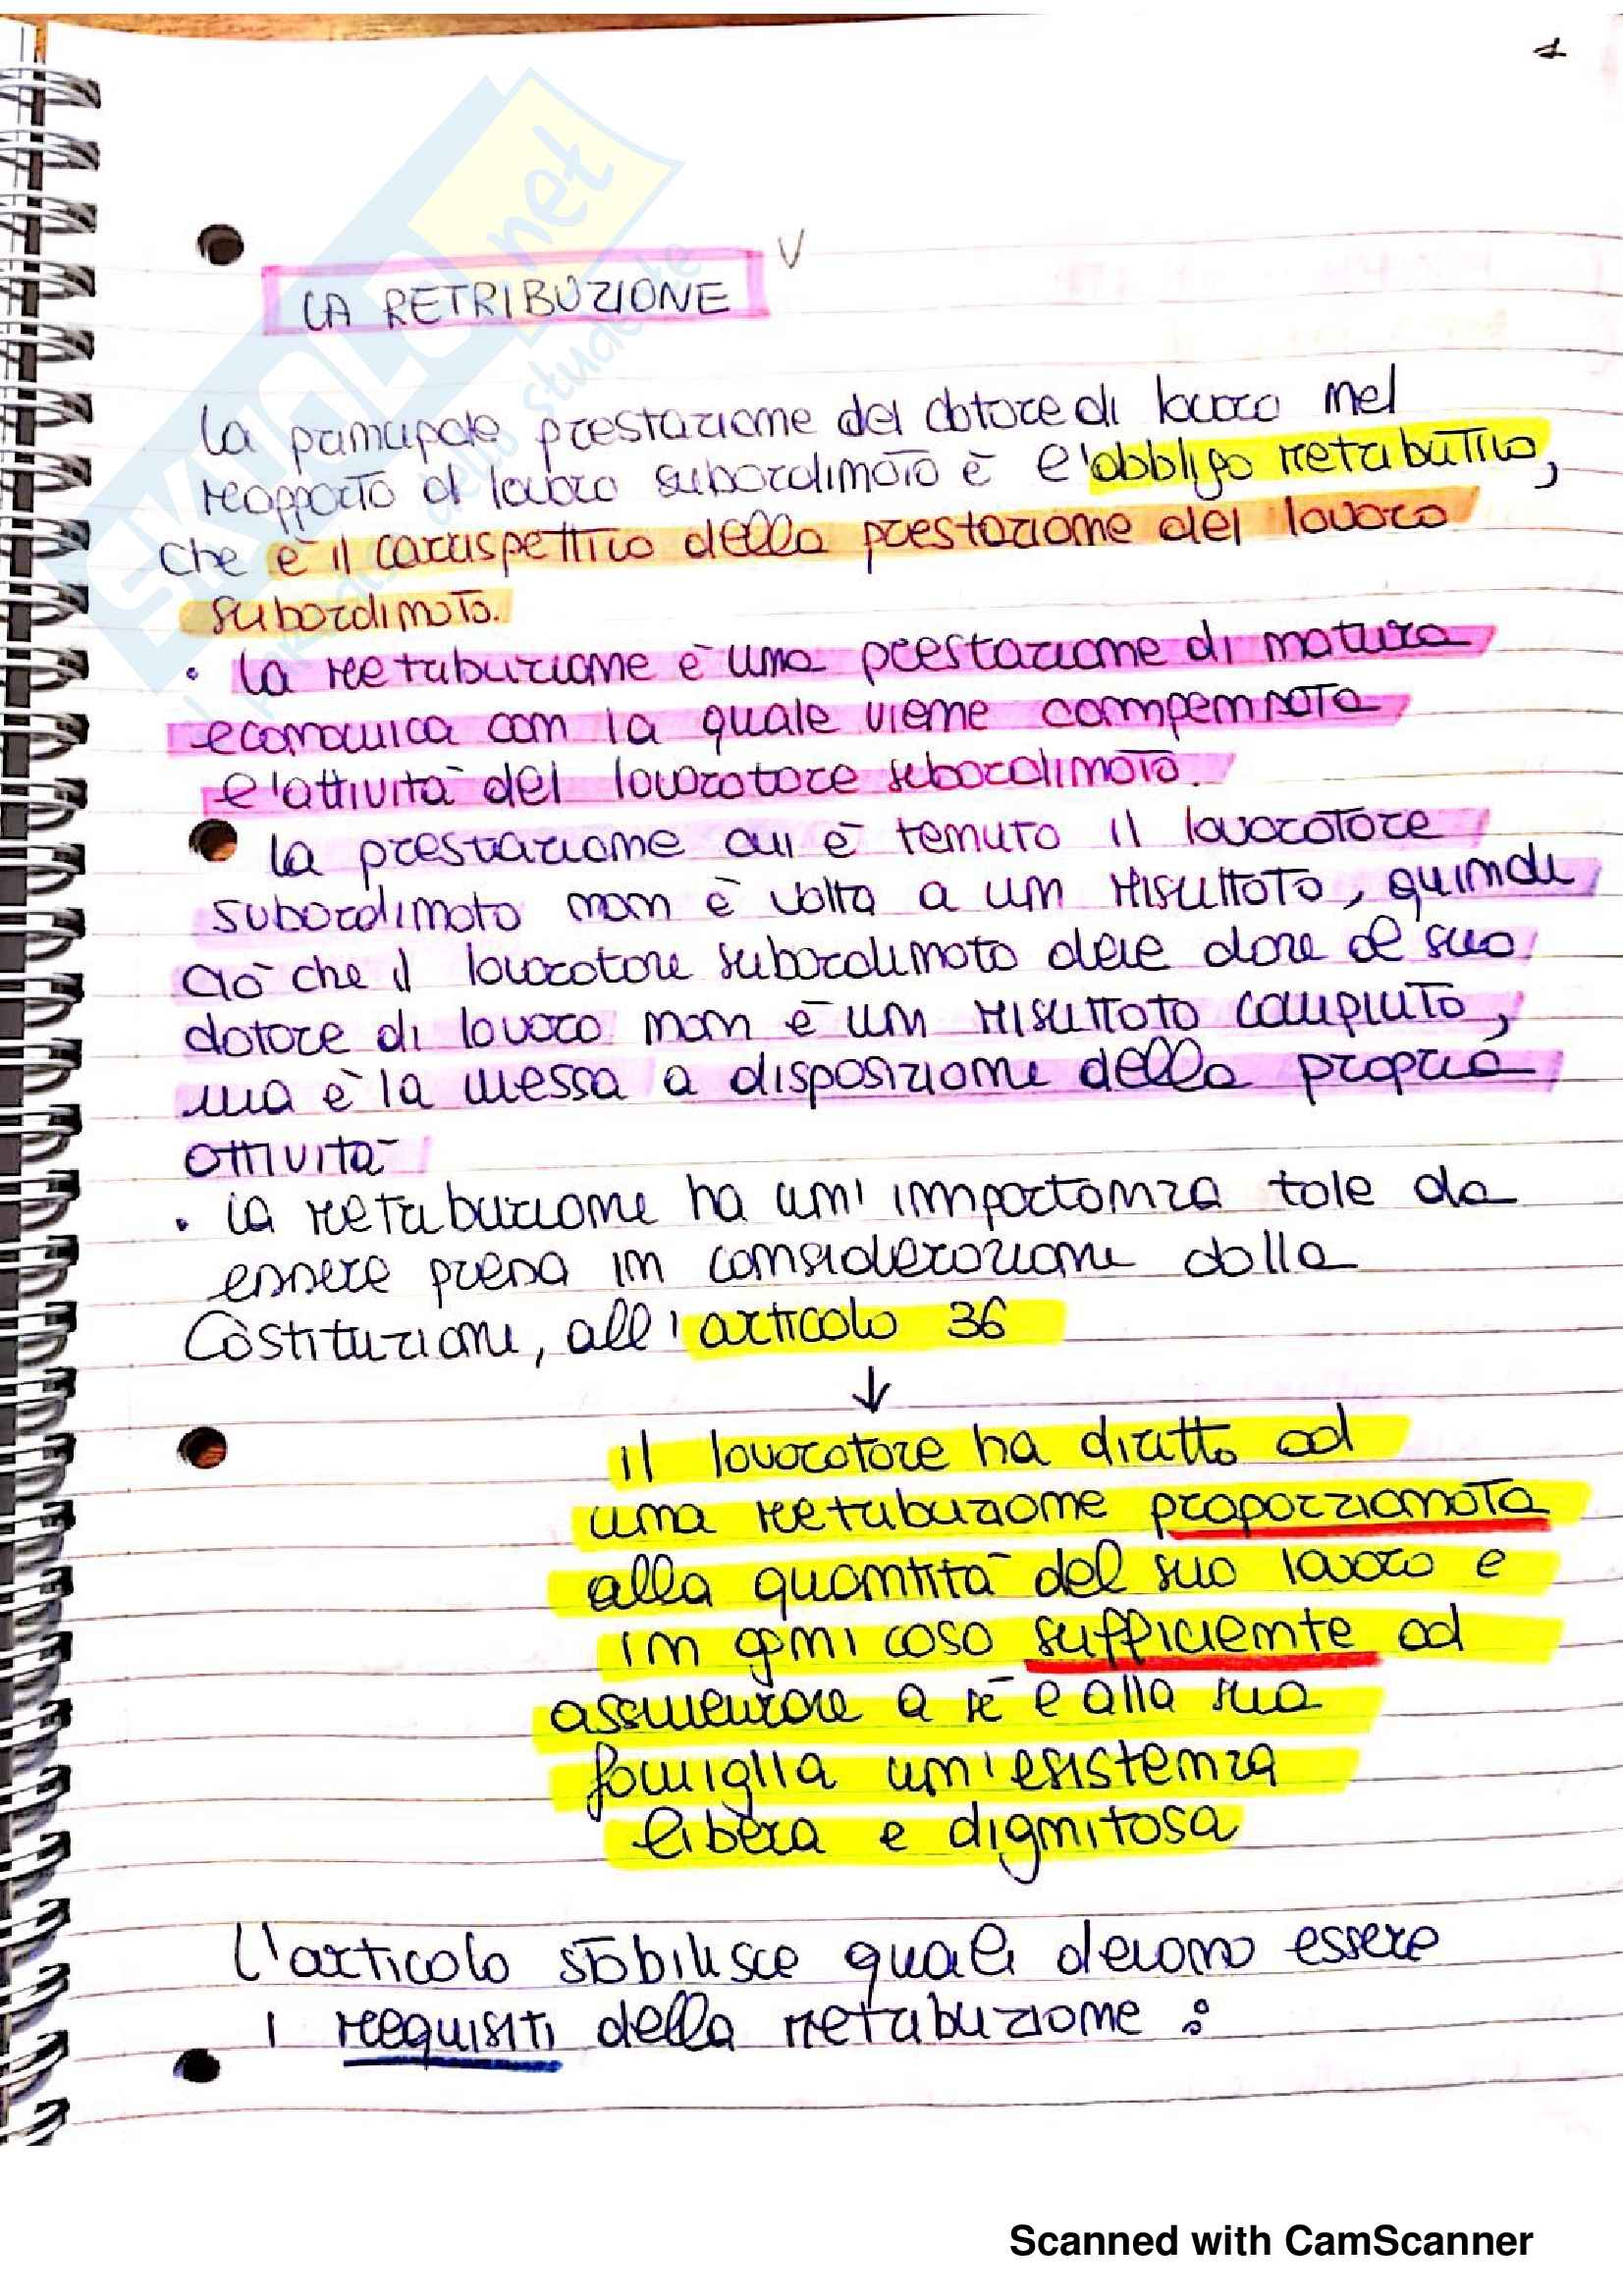 1
LA RETRIBUZIONE V
La principale prestazione del datore di lavoro nel
rapporto di lavoro subordinato è l'obbligo retributivo,
che è il corrispettivo della prestazione del lavoro
subordinato.
• La retribuzione è una prestazione di natura
economica con la quale viene compensata
l'attività del lavoratore subordinato.
La prestazione cui è tenuto il lavoratore
subordinato non è volta a un risultato, quindi
ciò che il lavoratore subordinato deve dare al suo
datore di lavoro non è un risultato compiuto,
ma è la messa a disposizione della propria
attività
• La retribuzione ha un'importanza tale da
essere presa in considerazione dalla
Costituzione, all'articolo 36
↓
il lavoratore ha diritto ad
una retribuzione proporzionata
alla quantità del suo lavoro e
in ogni caso sufficiente ad
assicurare a sé e alla sua
famiglia un'esistenza
libera e dignitosa
L'articolo stabilisce quali devono essere
i requisiti della retribuzione:
SKUOLA.net
Scanned with CamScanner